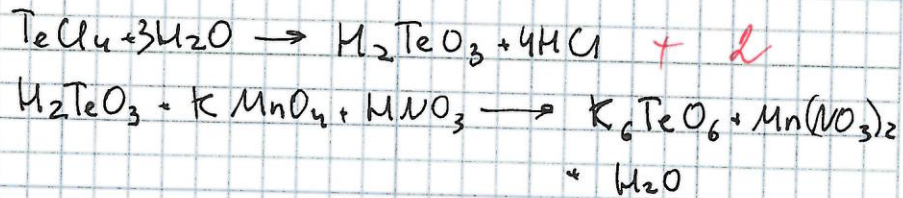 TeCl4 + 3H2O → H2TeO3 + 4HCl + 2
H2TeO3 + KMnO4 + HNO3 → K6TeO6 + Mn(NO3)2
+ H2O